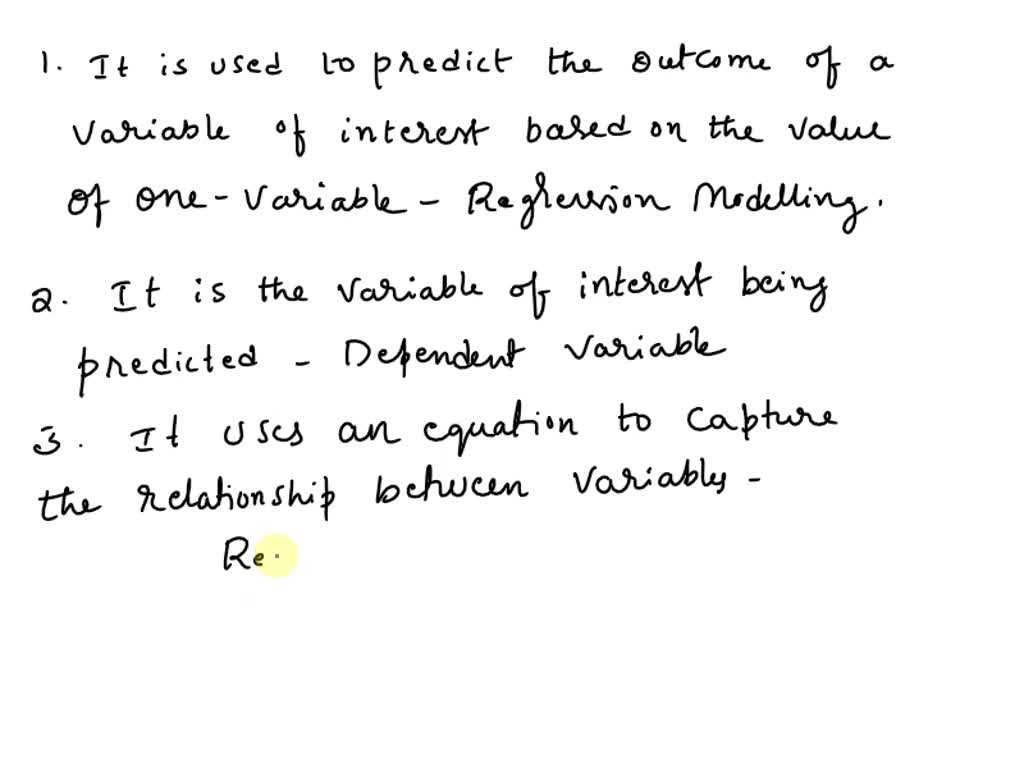 1. It is used to predict the outcome of a
variable of interest based on the value
of one-variable - Regression Modelling.
2. It is the variable of interest being
predicted - Dependent variable
3. It uses an equation to capture
the relationship between variables -
Re